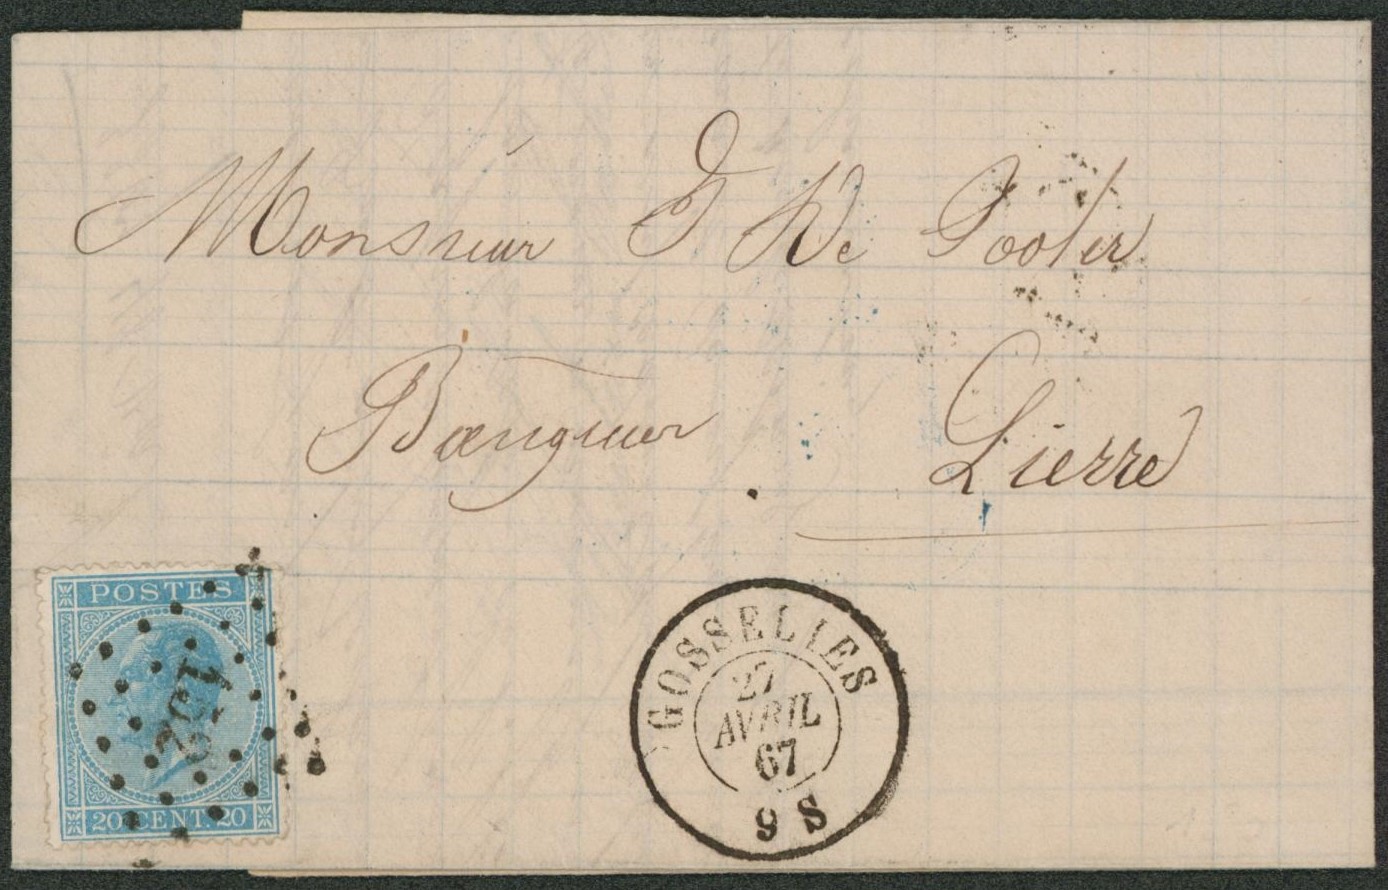 Monsieur J De Pooter
Banquier. Lierre
POSTES
20 CENT. 20
GOSSELIES
27
AVRIL
67
9 S